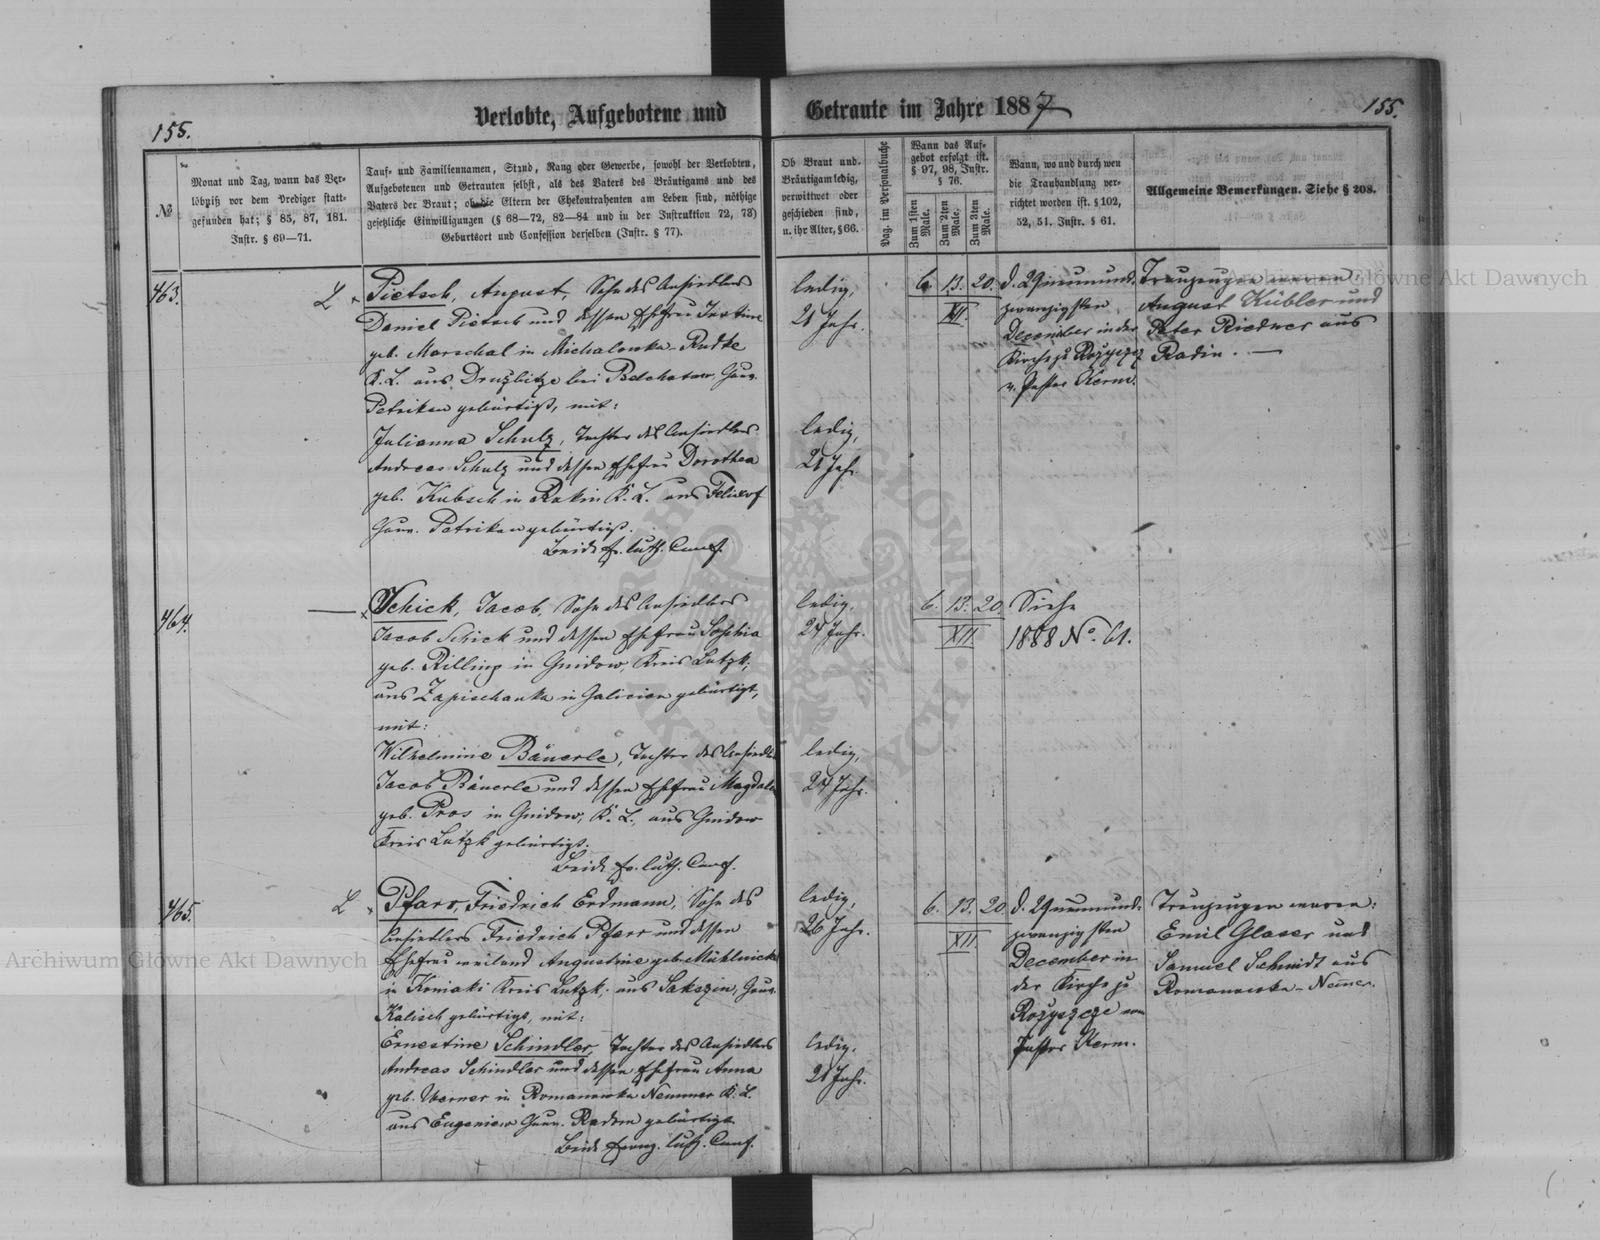 155.
Verlobte, Aufgebotene und Getraute im Jahre 1887
155.
№
Monat und Tag, wann das Ver-
löbniß vor dem Prediger statt-
gefunden hat; § 85, 87, 181.
Instr. § 69—71.
Tauf- und Familiennamen, Stand, Rang oder Gewerbe, sowohl der Verlobten,
Aufgebotenen und Getrauten selbst, als des Vaters des Bräutigams und des
Vaters der Braut; ob die Eltern der Ehekontrahenten am Leben sind, nöthige
gesetzliche Einwilligungen (§ 68—72, 82—84 und in der Instruktion 72, 73)
Geburtsort und Confession derselben (Instr. § 77).
Ob Braut und
Bräutigam ledig,
verwittwet oder
geschieden sind,
u. ihr Alter, § 66.
Pag. im Personalbuche
Wann das Auf-
gebot erfolgt ist.
§ 97, 98, Instr.
§ 76.
Zum 1sten Male.
Zum 2ten Male.
Zum 3ten Male.
Wann, wo und durch wen
die Trauhandlung ver-
richtet worden ist. § 102,
52, 51. Instr. § 61.
Allgemeine Bemerkungen. Siehe § 208.
463.
L
Pietsch, August, Sohn des Ansiedlers
Daniel Pietsch und dessen Ehefrau Justine
geb. Marschal in Michalowka-Rudke
K. L. aus Druzbitze bei Belchatow Gouv.
Petrikau gebürtigt, mit:
Julianna Schulz, Tochter des Ansiedlers
Andreas Schulz und dessen Ehefrau Dorothea
geb. Kubsch in K. L. aus
Gouv. Petrikau gebürtigt.
Beide ev. luth. Conf.
ledig,
21 Jahr.
ledig,
21 Jahr.
6. 13. 20.
XII.
d. 29 neunund-
zwanzigsten
December in der
Kirche zu Rozyszcz
v. Pastor Kerm.
Trauzeugen waren:
August Kübler und
Peter Riedner aus
Radin. —
464.
Schick, Jacob, Sohn des Ansiedlers
Jacob Schick und dessen Ehefrau Sophia
geb. Rilling in Gnidow, Kreis Lutzk,
aus Zapischanka in Galicien gebürtigt,
mit:
Wilhelmine Bäuerle, Tochter des Ansiedl.
Jacob Bäuerle und dessen Ehefrau Magdale
geb. Pros in Gnidow, K. L., aus Gnidow
Kreis Lutzk gebürtigt.
Beide ev. luth. Conf.
ledig,
24 Jahr.
ledig,
24 Jahr.
6. 13. 20
XII.
Siehe
1888 No. 61.
465.
L
Pfarr, Friedrich Erdmann, Sohn des
Ansiedlers Friedrich Pfarr und dessen
Ehefrau weiland Augustine geb.
in Koniaki Kreis Lutzk, aus Gouv.
Kalisch gebürtigt, mit:
Ernestine Schindler, Tochter des Ansiedlers
Andreas Schindler und dessen Ehefrau Anna
geb. Werner in Romanowka Nemmer K. L.
aus Eugeniew Gouv. Radom gebürtigt
Beide evang. luth. Conf.
ledig,
26 Jahr.
ledig,
21 Jahr.
6. 13. 20
XII.
d. 29 neunund-
zwanzigsten
December in
der Kirche zu
Rozyszcze von
Pastor Kerm.
Trauzeugen waren:
Emil Glaser und
Samuel Schmidt aus
Romanowka-Nemer.
Archiwum Główne Akt Dawnych
Archiwum Główne Akt Dawnych
ARCHIWUM GŁÓWNE AKT DAWNYCH